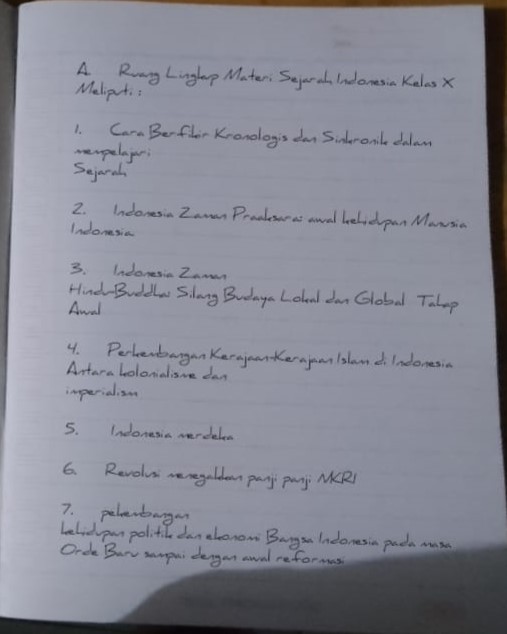 A. Ruang Lingkup Materi Sejarah Indonesia Kelas X
Meliputi :
1. Cara Berfikir Kronologis dan Sinkronik dalam
mempelajari
Sejarah
2. Indonesia Zaman Praaksara: awal kehidupan Manusia
Indonesia
3. Indonesia Zaman
Hindu-Buddha: Silang Budaya Lokal dan Global Tahap
Awal
4. Perkembangan Kerajaan-Kerajaan Islam di Indonesia
Antara kolonialisme dan
imperialism
5. Indonesia merdeka
6. Revolusi menegakkan panji panji NKRI
7. pekembangan
kehidupan politik dan ekonomi Bangsa Indonesia pada masa
Orde Baru sampai dengan awal reformasi